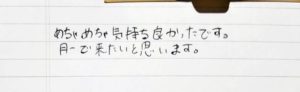 めちゃめちゃ気持ち良かったです。
月一で来たいと思います。